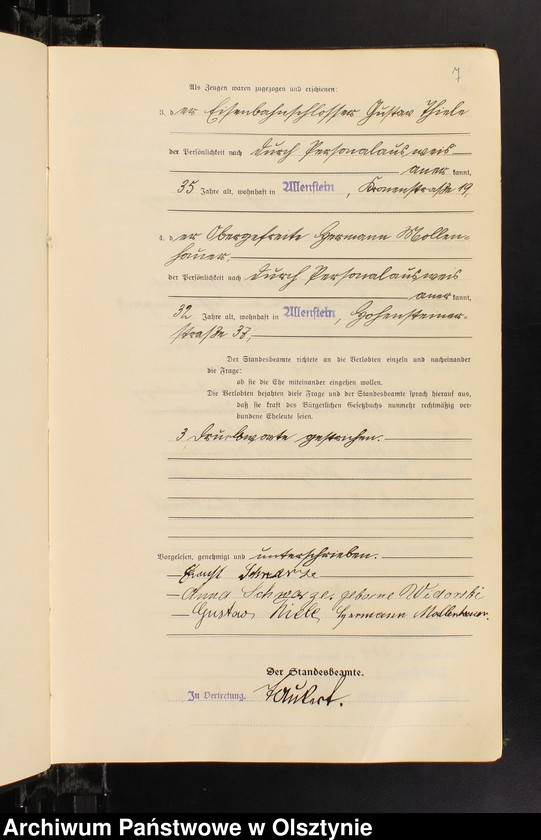 7
Als Zeugen waren zugezogen und erschienen:
3. der Eisenbahnschlosser Gustav Thiele
der Persönlichkeit nach durch Personalausweis
aner kannt,
35 Jahre alt, wohnhaft in Allenstein, Kronenstraße 19,
4. der Obergefreite Hermann Mollen-
hauer,
der Persönlichkeit nach durch Personalausweis
aner kannt,
32 Jahre alt, wohnhaft in Allenstein, Hohensteiner-
straße 33,
Der Standesbeamte richtete an die Verlobten einzeln und nacheinander
die Frage:
ob sie die Ehe miteinander eingehen wollen.
Die Verlobten bejahten diese Frage und der Standesbeamte sprach hierauf aus,
daß sie kraft des Bürgerlichen Gesetzbuchs nunmehr rechtmäßig ver-
bundene Eheleute seien.
3 Druckworte gestrichen.
Vorgelesen, genehmigt und unterschrieben.
Schwarze
Anna Schwarze, geborne Widorski
Gustav Thiele, Hermann Mollenhauer.
Der Standesbeamte.
In Vertretung.
Archiwum Państwowe w Olsztynie